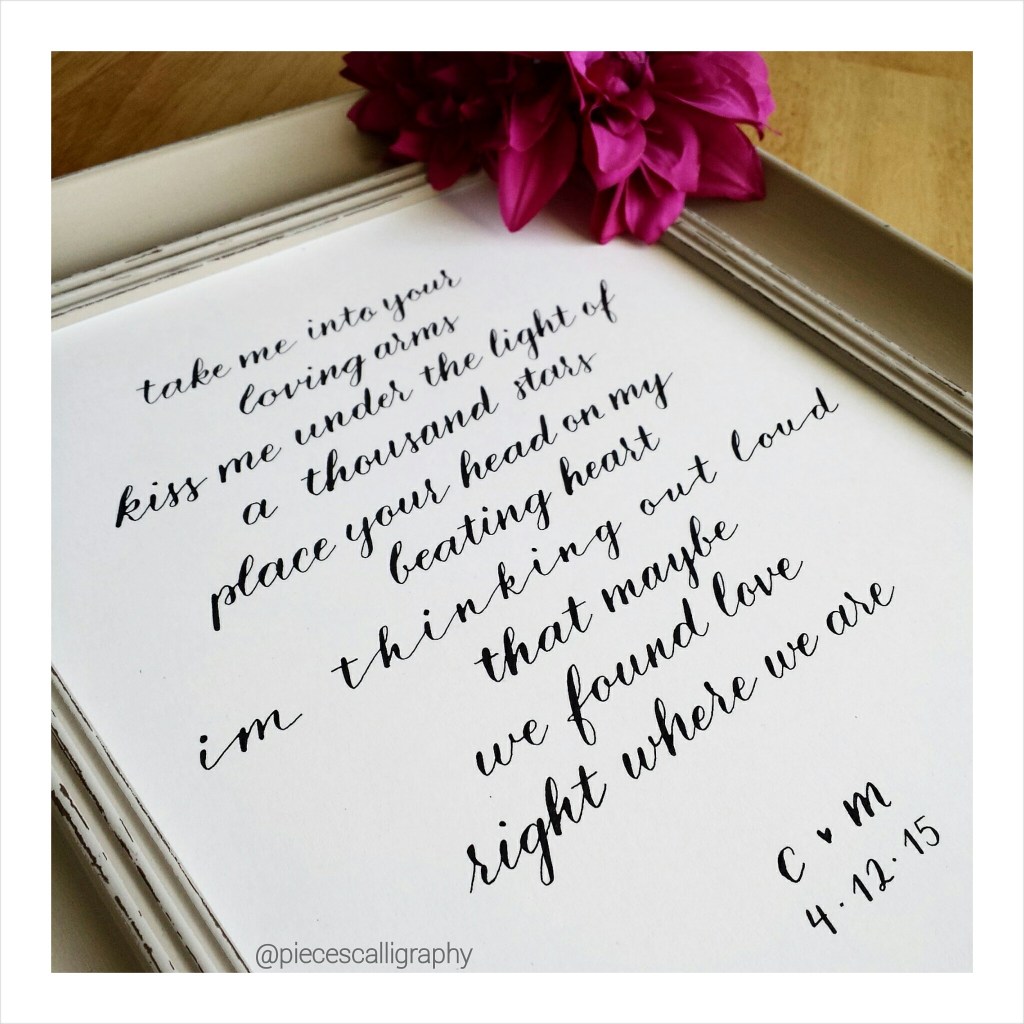 take me into your
loving arms
kiss me under the light of
a thousand stars
place your head on my
beating heart
im thinking out loud
that maybe
we found love
right where we are
c ♥ m
4.12.15
@piecescalligraphy